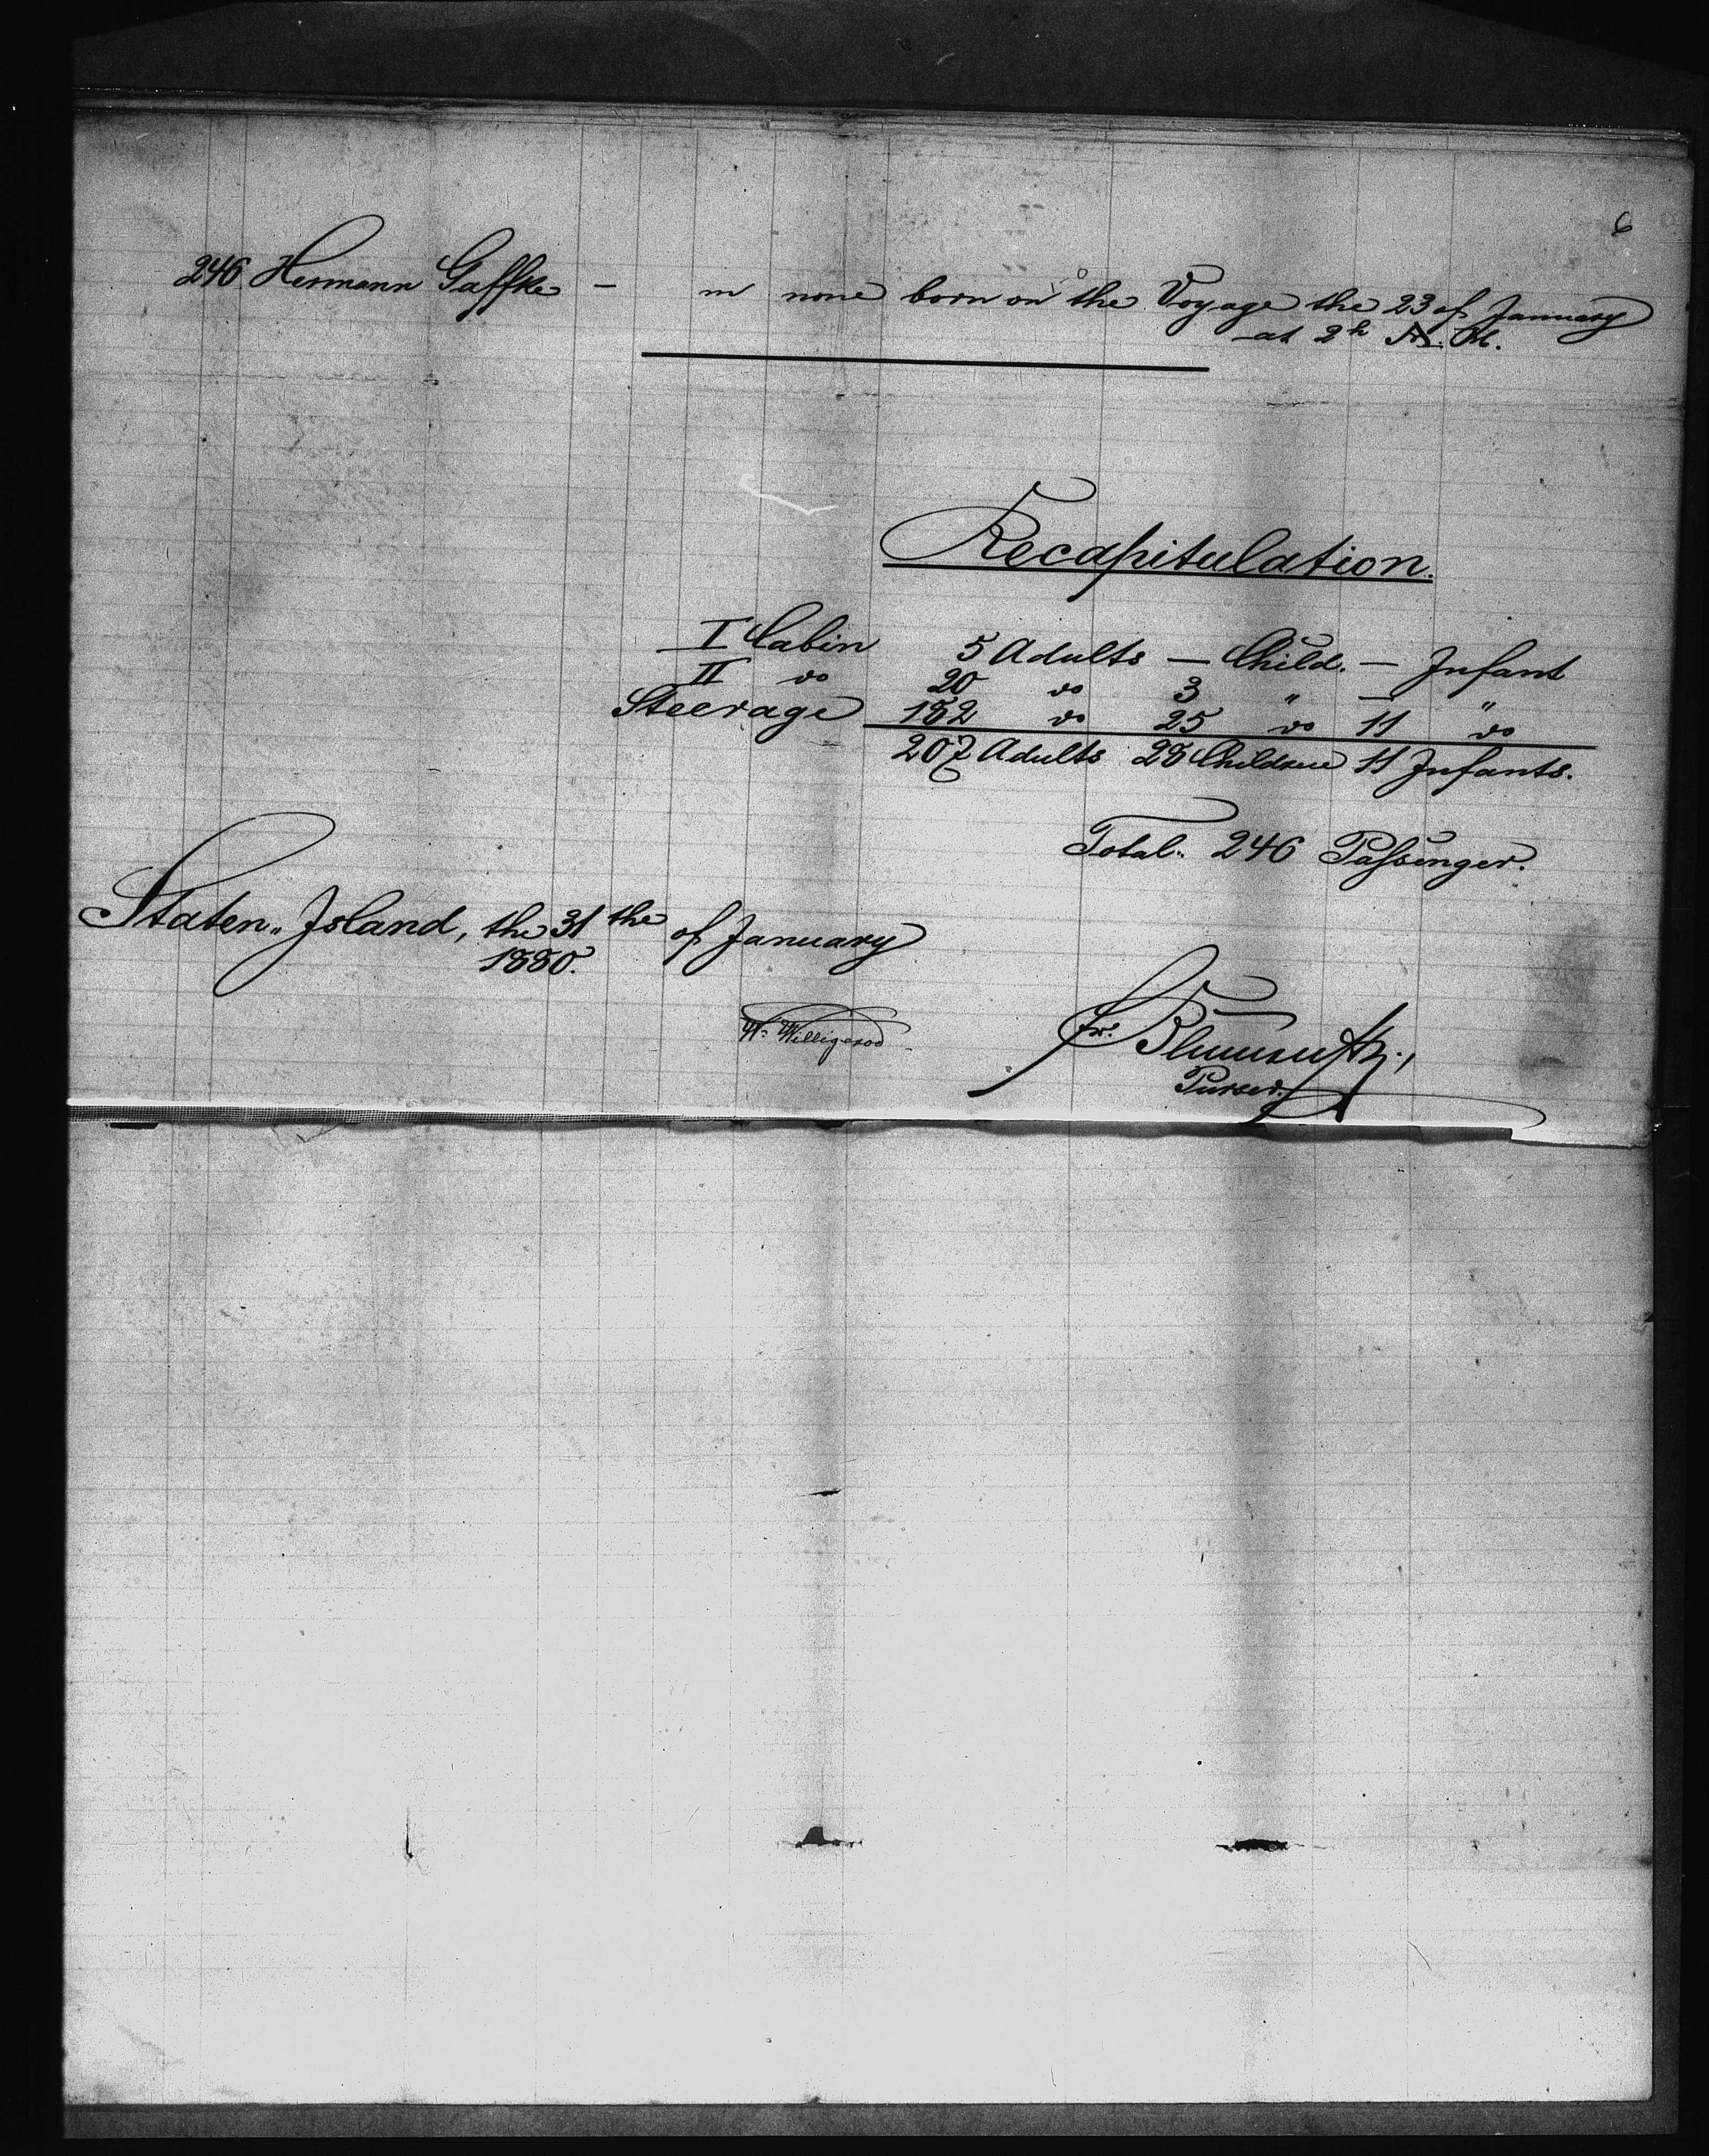 6
246 Hermann Gaffke - m none born on the Voyage the 23 of January
at 2h A. M.
Recapitulation.
I Cabin 5 Adults — Child. — Infant
II do 20 do 3 " — "
Steerage 182 do 25 do 11 do
207 Adults 28 Children 11 Infants.
Total. 246 Passenger.
Staten Island, the 31 the of January
1880.
W. Willigerod
Fr.
Purser.